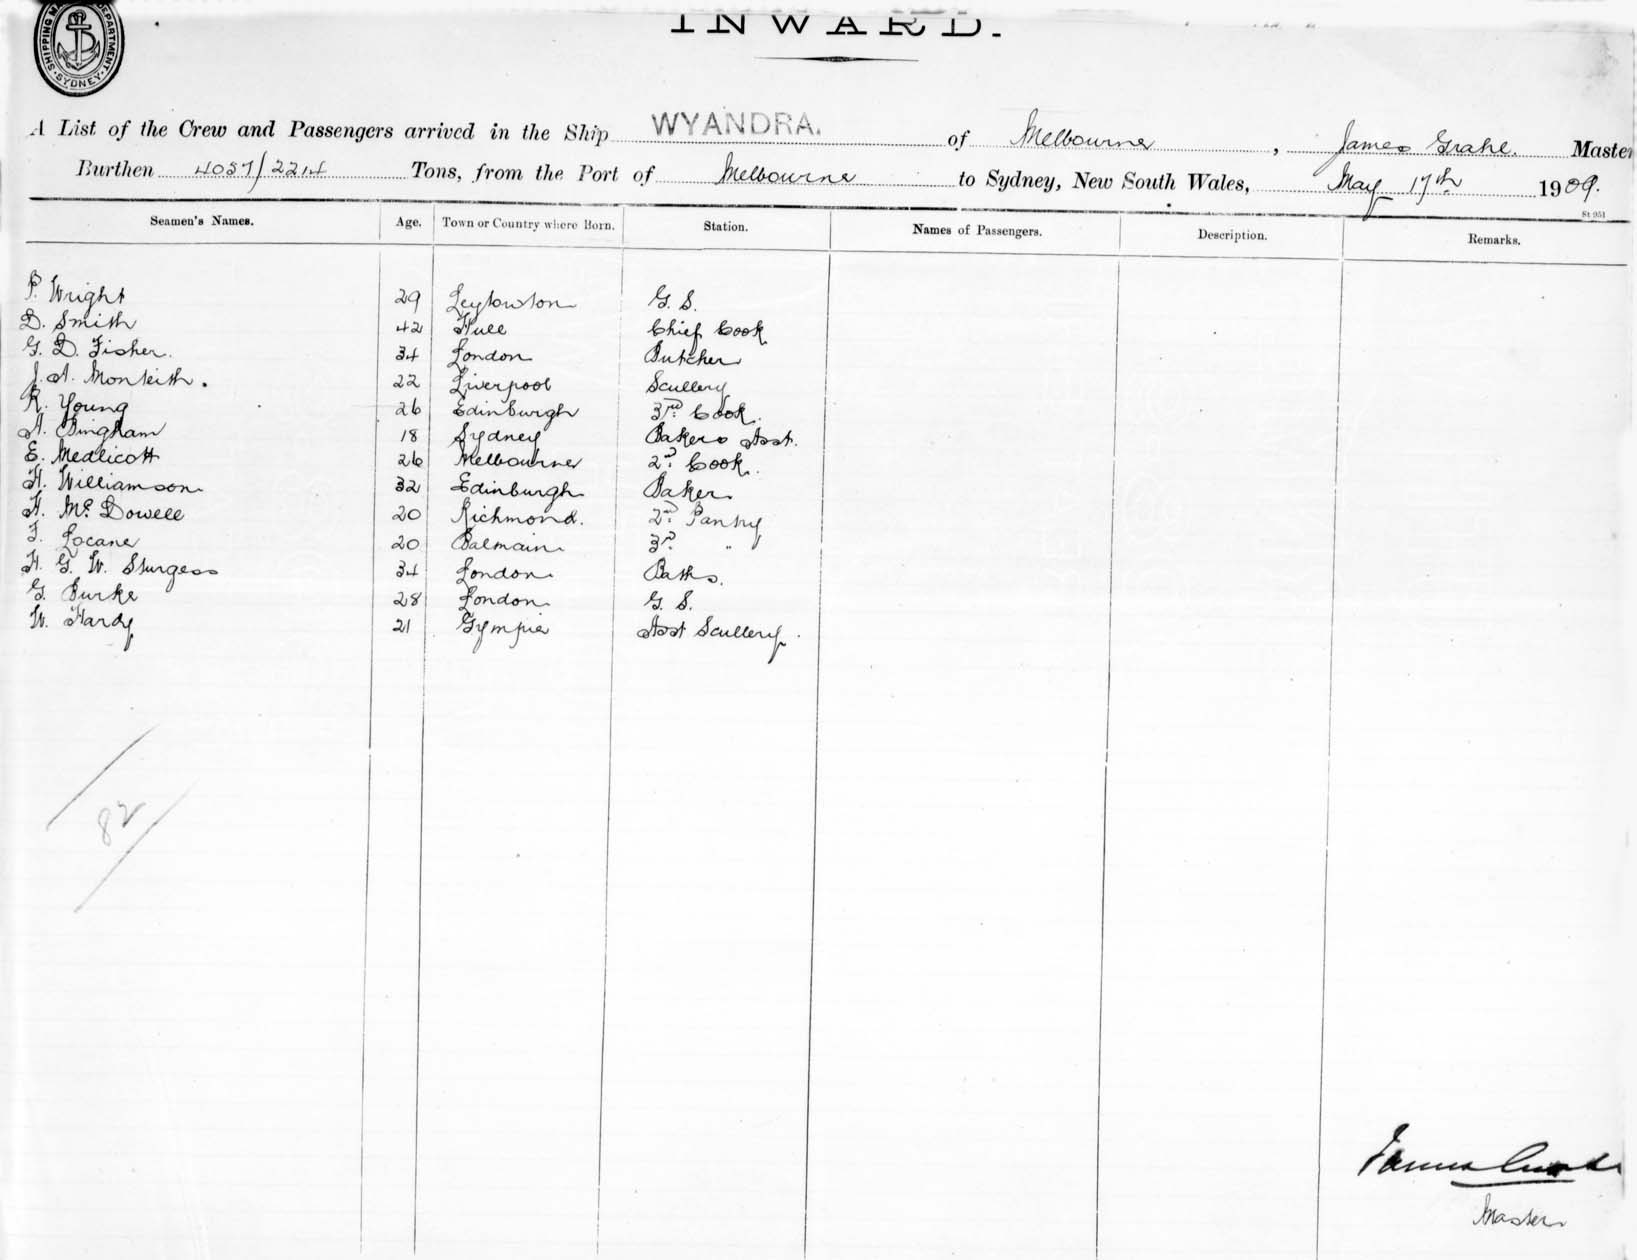 SHIPPING MA DEPARTMENT. SYDNEY
INWARD.
A List of the Crew and Passengers arrived in the Ship WYANDRA. of Melbourne, James Grahl. Master
Burthen 4057/2214 Tons, from the Port of Melbourne to Sydney, New South Wales, May 17th 1909.
St 951
Seamen's Names. Age. Town or Country where Born. Station. Names of Passengers. Description. Remarks.
P. Wright 29 Leytonston G. S.
D. Smith 42 Hull Chief Cook
G. D. Fisher. 34 London Butcher
J. A. Monteith. 22 Liverpool Scullery
R. Young 26 Edinburgh 3rd Cook.
A. Bingham 18 Sydney Bakers Asst.
E. Medlicott 26 Melbourne 2nd Cook.
H. Williamson 32 Edinburgh Baker
H. McDowell 20 Richmond. 2nd Pantry
F. Locane 20 Balmain 3rd "
H. G. W. Sturgess 34 London Baths.
G. Burke 28 London G. S.
W. Hardy 21 Gympie Asst Scullery.
82
James
Master